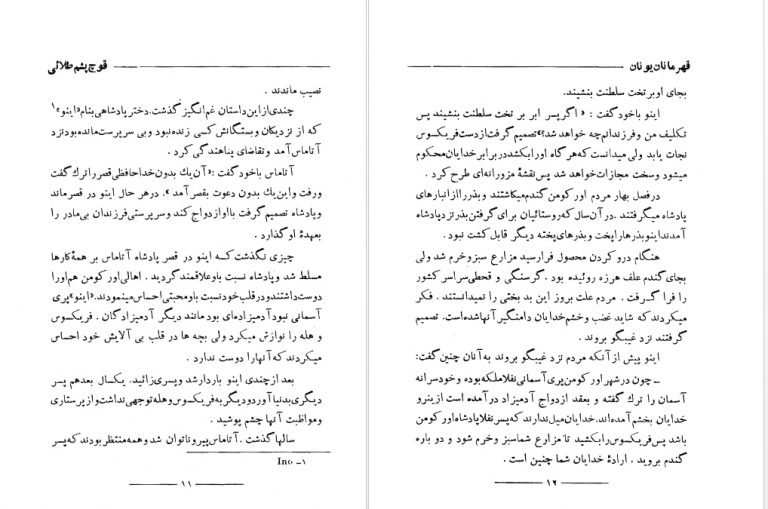 قوچ پشم طلائی
نصیب ماندند .
چندی از این داستان غم انگیز گذشت، دختر پادشاهی بنام «اینو»۱
که از نزدیکان و بستگانش کسی زنده نبود و بی سرپرست مانده بود نزد
آتاماس آمد و تقاضای پناهندگی کرد .
آتاماس باخود گفت :«آن یك بدون خداحافظی قصر را ترك گفت
ورفت و این یك بدون دعوت بقصر آمد ». درهر حال اینو در قصر ماند
و پادشاه تصمیم گرفت با او ازدواج کند و سرپرستی فرزندان بی مادر را
بعهدۀ او گذارد .
چیزی نگذشت کسه اینو در قصر پادشاه آتاماس بر همۀ کارها
مسلط شد و پادشاه نسبت باو علاقمند گردید . اهالی اورکومن هم او را
دوست داشتند و در قلب خود نسبت باو محبتی احساس مینمودند، «اینو» پری
آسمانی نبود آدمیزاده ای بود مانند دیگر آدمیزادگان . فریکسوس
و هله را نوازش میکرد ولی بچه ها در قلب بی آلایش خود احساس
میکردند که آنها را دوست ندارد .
بعد از چندی اینو باردار شد و پسری زائید. یکسال بعد هم پسر
دیگری بدنیا آورد و دیگر به فریکسوس و هله توجهی نداشت و از پرستاری
ومواظبت آنها چشم پوشید .
سالها گذشت . آتاماس پیر و ناتوان شد و همه منتظر بودند که پسر
۱- Ino
۱۱
قهرمانان یونان
بجای او بر تخت سلطنت بنشیند.
اینو باخود گفت : « اگر پسر ابر بر تخت سلطنت بنشیند پس
تکلیف من و فرزندانم چه خواهد شد؟» تصمیم گرفت از دست فریکسوس
نجات یابد ولی میدانست که هر گاه او را بکشد در برابر خدایان محکوم
میشود و سخت مجازات خواهد شد پس نقشۀ مزورانه ای طرح کرد .
در فصل بهار مردم اورکومن گندم میکاشتند و بذر را از انبارهای
پادشاه میگرفتند . در آن سال که روستائیان برای گرفتن بذر نزد پادشاه
آمدند اینو بذرها را پخت و بذرهای پخته دیگر قابل کشت نبود .
هنگام درو کردن محصول فرا رسید مزارع سبز و خرم شد ولی
بجای گندم علف هرزه روئیده بود . گرسنگی و قحطی سراسر کشور
را فرا گرفت . مردم علت بروز این بد بختی را نمیدانستند . فکر
میکردند که شاید غضب و خشم خدایان دامنگیر آنها شده است. تصمیم
گرفتند نزد غیبگو بروند .
اینو پیش از آنکه مردم نزد غیبگو بروند به آنان چنین گفت:
ـ چون در شهر اورکومن پری آسمانی نفلا ملکه بوده و خودسرانه
آسمان را ترك گفته و بعقد ازدواج آدمیزاد درآمده است از ینرو
خدایان بخشم آمده اند، خدایان میل دارند که پسر نفلا پادشاه اورکومن
باشد پس فریکسوس را بکشید تا مزارع شما سبز و خرم شود و دو باره
گندم بروید . ارادۀ خدایان شما چنین است .
۱۲